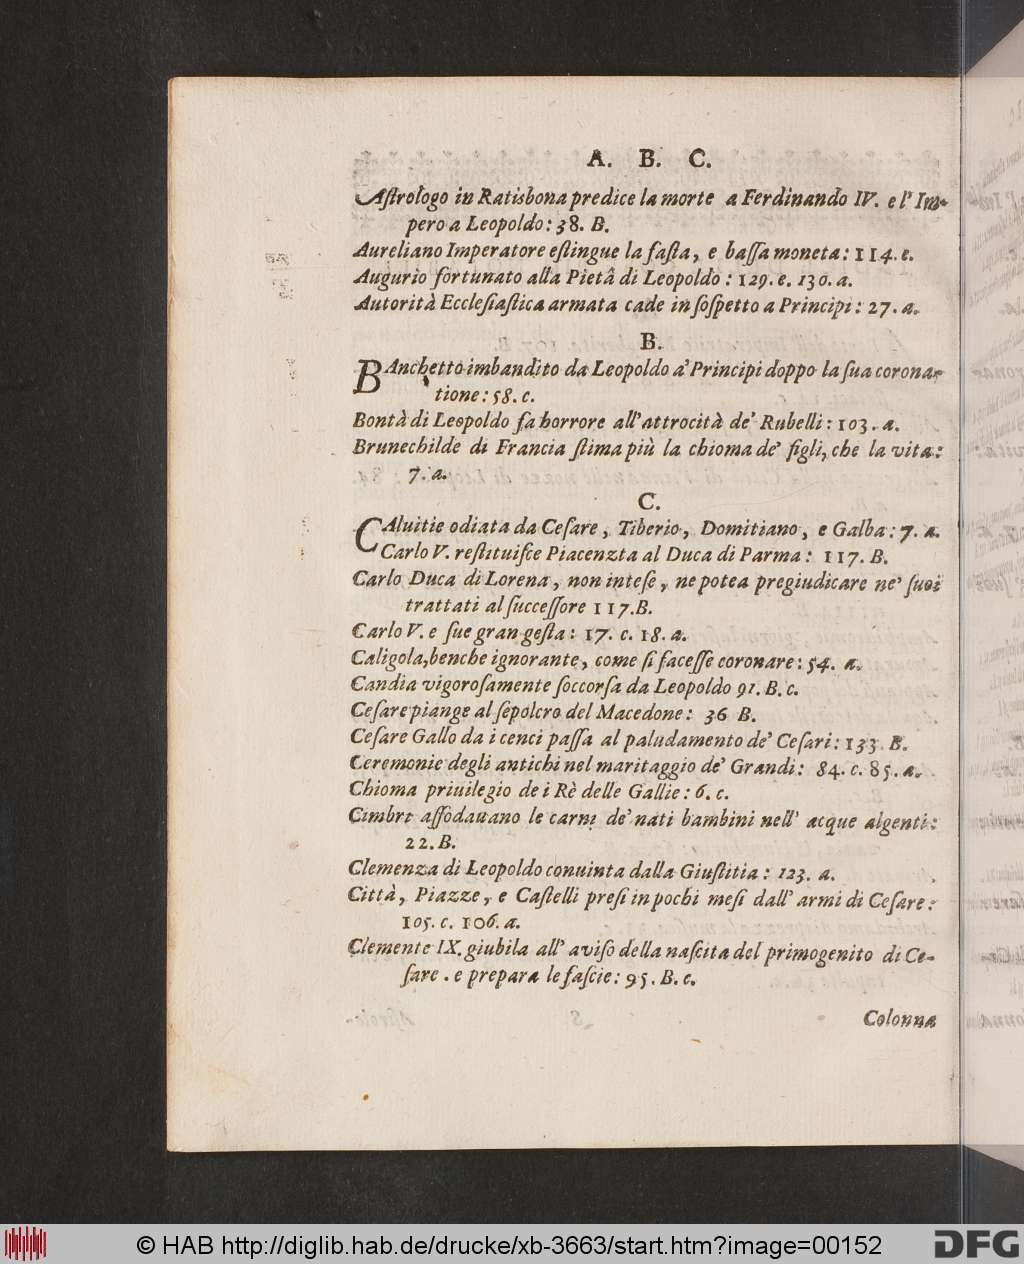 A. B. C.
Aſtrologo in Ratisbona predice la morte a Ferdinando IV. e l' Im-
pero a Leopoldo: 38. B.
Aureliano Imperatore eſtingue la faſta, e baſſa moneta: 114. c.
Augurio fortunato alla Pietâ di Leopoldo: 129. c. 130. a.
Autorità Eccleſiaſtica armata cade in ſoſpetto a Principi: 27. a.
B.
BAnchetto imbandito da Leopoldo a' Principi doppo la ſua corona-
tione: 58. c.
Bontà di Leopoldo fa horrore all' attrocità de' Rubelli: 103. a.
Brunechilde di Francia ſtima più la chioma de' figli, che la vita:
7. a.
C.
CAluitie odiata da Ceſare, Tiberio, Domitiano, e Galba: 7. a.
Carlo V. reſtituiſce Piacenzta al Duca di Parma: 117. B.
Carlo Duca di Lorena, non inteſe, ne potea pregiudicare ne' ſuoi
trattati al ſucceſſore 117. B.
Carlo V. e ſue gran geſta: 17. c. 18. a.
Caligola, benche ignorante, come ſi faceſſe coronare: 54. a.
Candia vigoroſamente ſoccorſa da Leopoldo 91. B. c.
Ceſare piange al ſepolcro del Macedone: 36 B.
Ceſare Gallo da i cenci paſſa al paludamento de' Ceſari: 133. B.
Ceremonie degli antichi nel maritaggio de' Grandi: 84. c. 85. a.
Chioma priuilegio de i Rè delle Gallie: 6. c.
Cimbri aſſodauano le carni de' nati bambini nell' acque algenti:
22. B.
Clemenza di Leopoldo conuinta dalla Giuſtitia: 123. a.
Città, Piazze, e Caſtelli preſi in pochi meſi dall' armi di Ceſare:
105. c. 106. a.
Clemente IX. giubila all' auiſo della naſcita del primogenito di Ce-
ſare. e prepara le faſcie: 95. B. c.
Colonna
© HAB http://diglib.hab.de/drucke/xb-3663/start.htm?image=00152
DFG